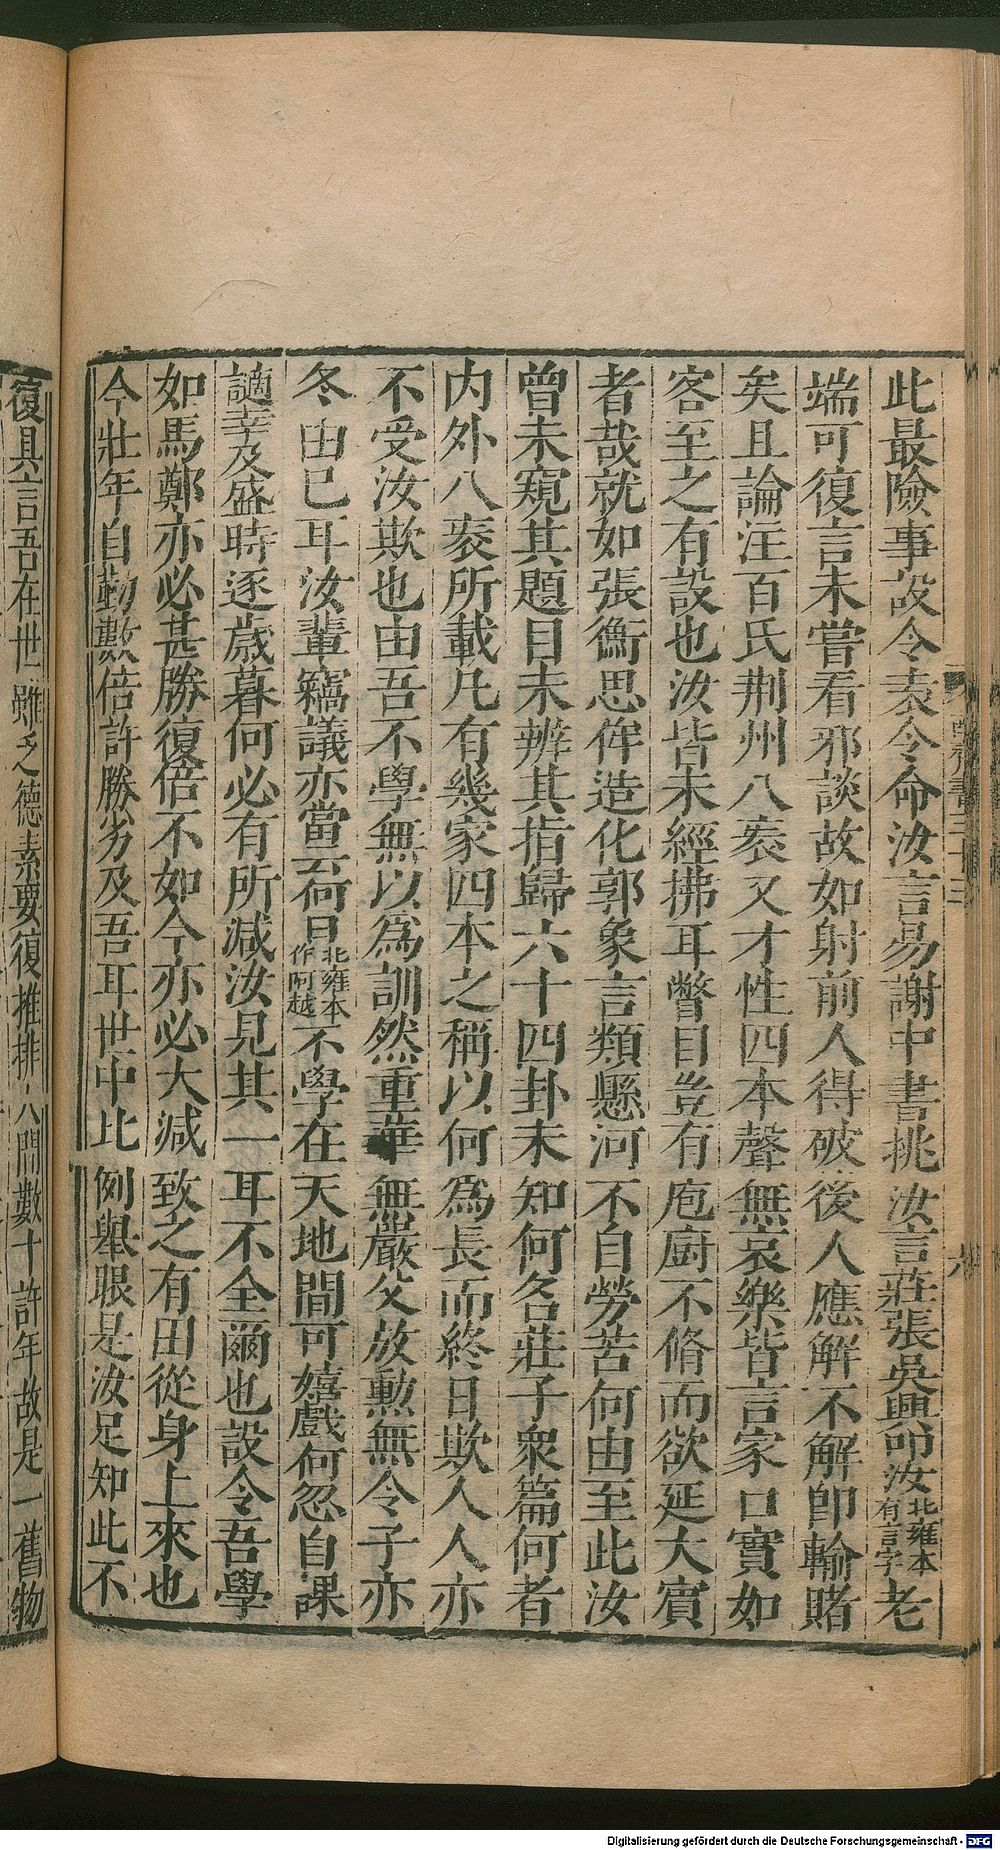 此最險事設令袁令命汝言易謝中書挑汝言莊張吳興叩汝北雍本有言字老
端可復言未嘗看邪談故如射前人得破後人應解不解即輸賭
矣且論注百氏荆州八袠又才性四本聲無哀樂皆言家口實如
客至之有設也汝皆未經拂耳瞥目豈有庖厨不脩而欲延大賓
者哉就如張衡思侔造化郭象言類懸河不自勞苦何由至此汝
曾未窺其題目未辨其指歸六十四卦未知何名莊子衆篇何者
内外八袠所載凡有幾家四本之稱以何爲長而終日欺人人亦
不受汝欺也由吾不學無以爲訓然重華無嚴父放勳無令子亦
各由己耳汝輩竊議亦當云何日北雍本作阿越不學在天地間可嬉戲何忽自課
謫幸及盛時逐歲暮何必有所減汝見其一耳不全爾也設令吾學
如馬鄭亦必甚勝復倍不如今亦必大減致之有由從身上來也
今壯年自勤數倍許勝劣及吾耳世中比例舉眼是汝足知此不
復具言吾在世雖乏德素要復推排人間數十許年故是一舊物
Digitalisierung gefördert durch die Deutsche Forschungsgemeinschaft - DFG